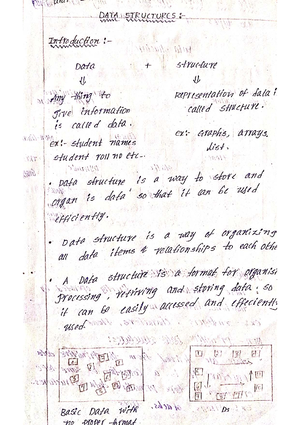 DATA STRUCTURES:-
Introduction :-
Data + structure
⇓ ⇓
Any thing to Representation of data i
give information called structure.
is called data.
ex:- Graphs, arrays,
ex:- student names list.
student roll no etc..
• Data structure is a way to store and
organ is data so that it can be used
efficiently.
• Data structure is a way of organizing
all data items & relationships to each othe
• A Data structure is a format for organisi
processing, retriving and storing data. so
it can be easily accessed and effeciently
used
Basic Data with
no proper format